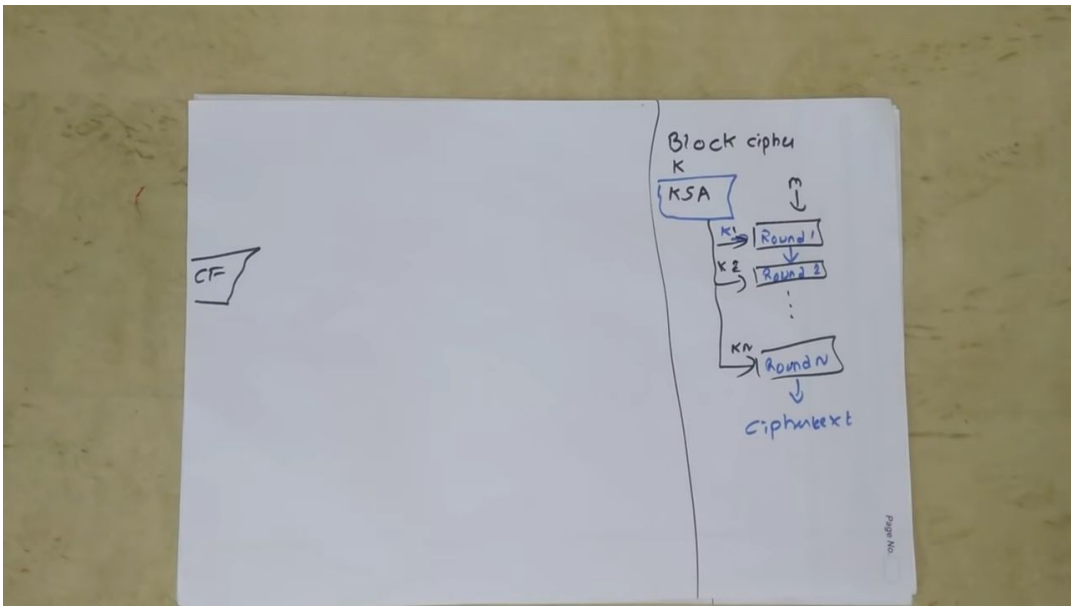 Block cipher
K
KSA
m
K1
Round 1
K2
Round 2
KN
Round N
Ciphertext
CF
Page No.